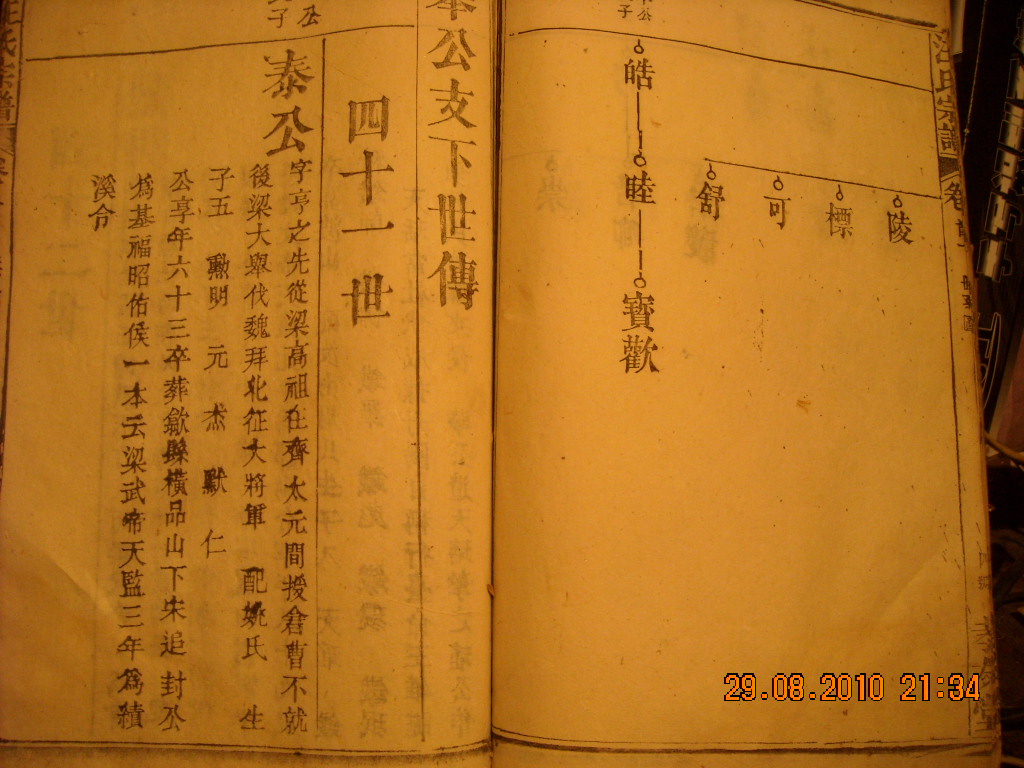 汪氏宗譜
陵
標
可
舒
皓
睦
寶歡
公支下世傳
四十一世
泰公
字亨之先從梁高祖在齊太元間授倉曹不就
後梁大舉伐魏拜北征大將軍 配姚氏 生
子五 勳明 元 杰 默 仁
公享年六十三卒葬歙縣橫品山下宋追封公
為基福昭佑侯一本云梁武帝天監三年為績
溪令
29.08.2010 21:34